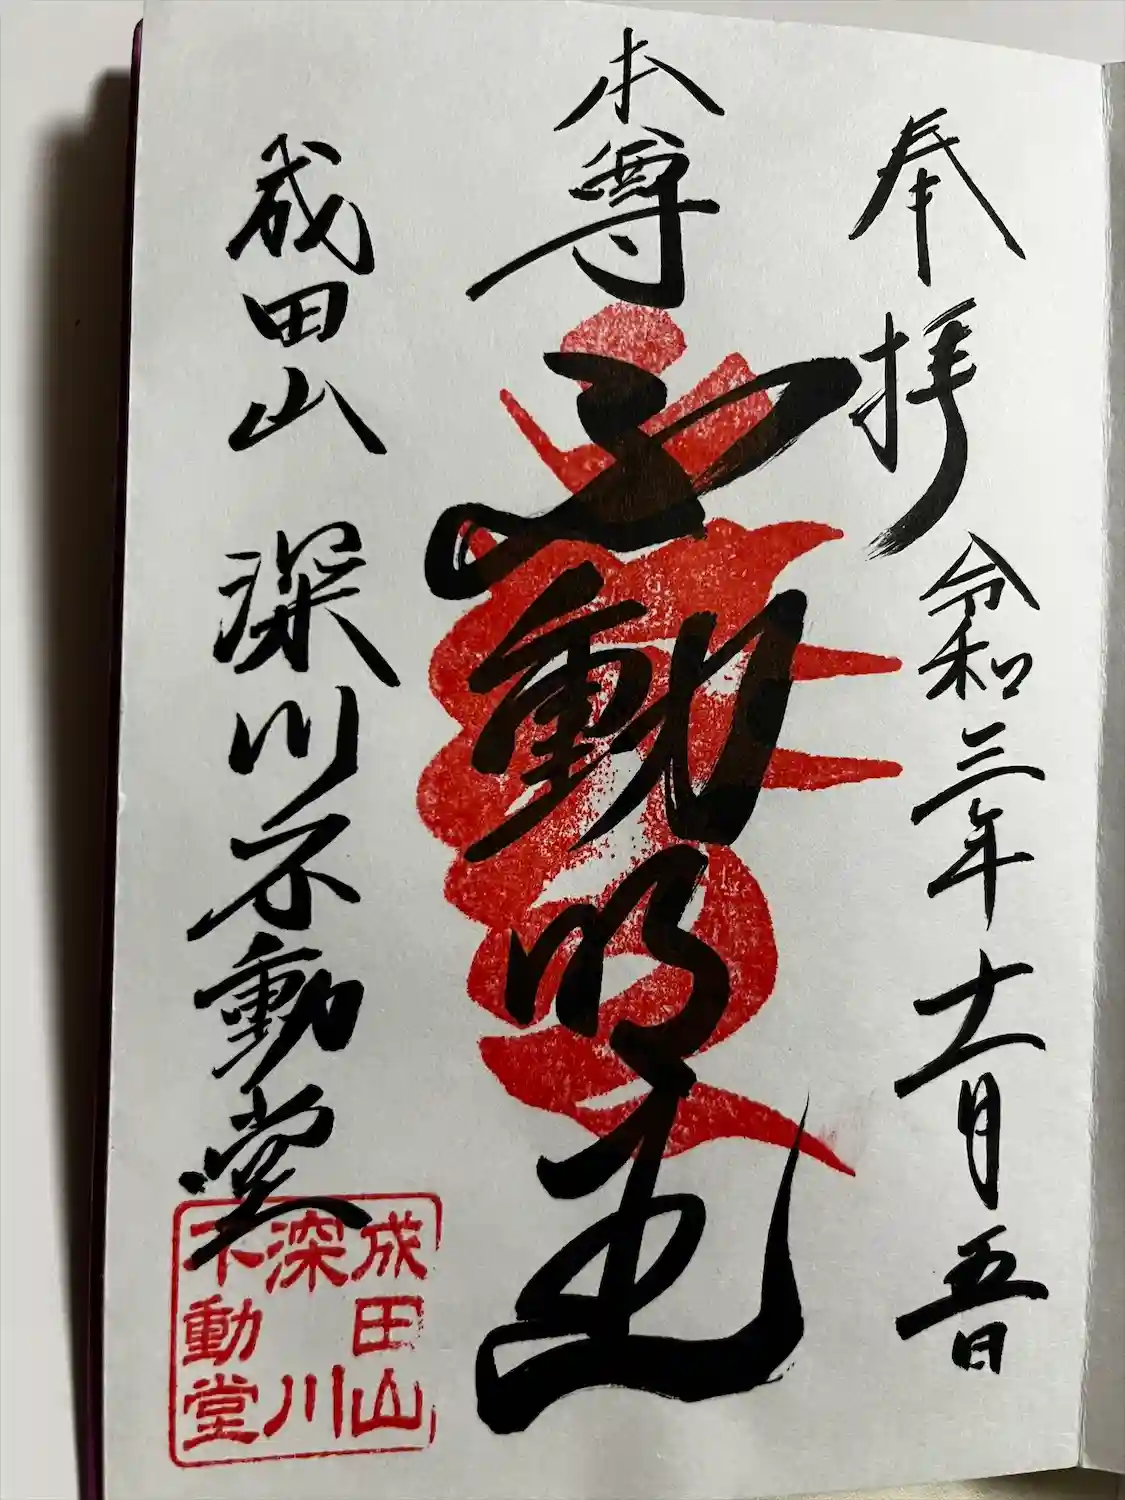 奉拝 令和三年十一月五日
本尊 不動明王
成田山 深川不動堂
成田山
深川
不動堂